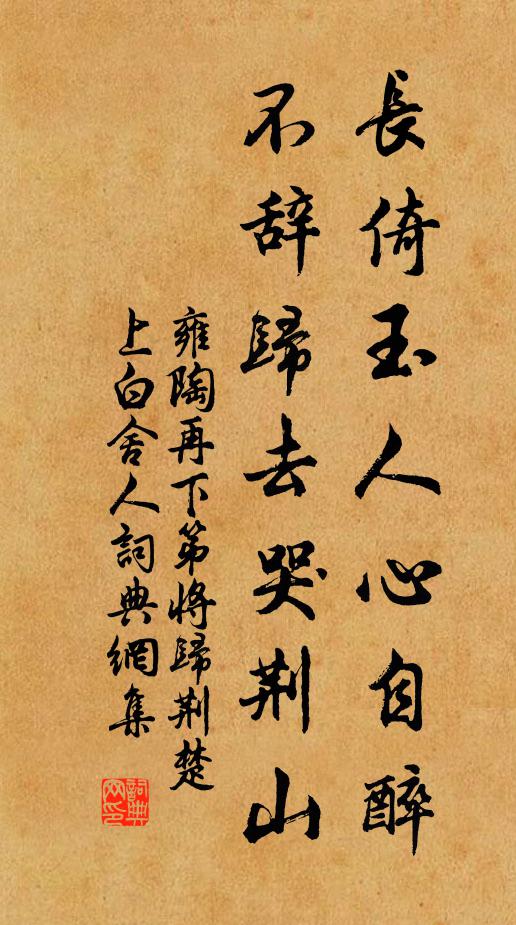 長倚玉人心自醉
不辞歸去哭荆山
雍陶再下第將歸荆楚
上白舍人詞典網集
詞典网印